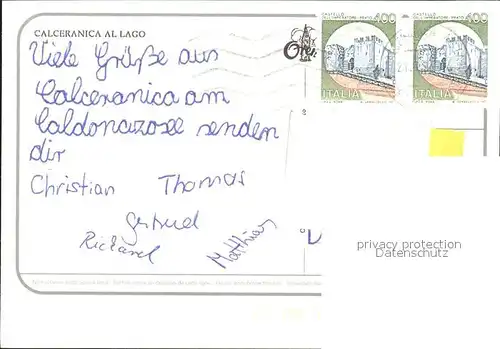 CALCERANICA AL LAGO
Viele Grüße aus
Calceranica am
Caldonazosee senden
dir
Christian Thomas
Gertrud
Richard Matthias
CASTELLO
DELL'IMPERATORE · PRATO 400
ITALIA
CASTELLO
DELL'IMPERATORE · PRATO 400
ITALIA
privacy protection
Datenschutz